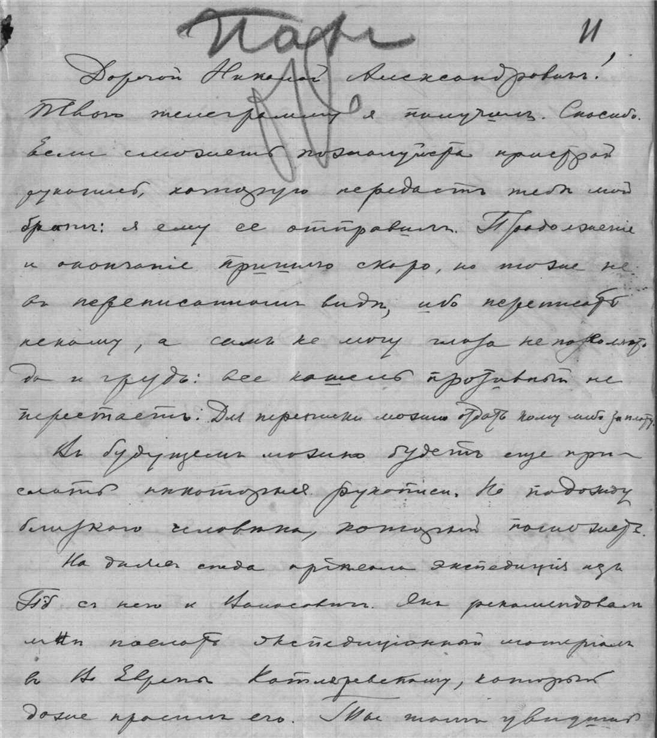 11
Дорогой Николай Александрович!
Твою телеграмму я получилъ. Спасибо.
Если сможешь пожалуйста пристрой
рукопись, которую передастъ тебѣ мой
братъ: я ему ее отправилъ. Продолженіе
и окончаніе пришлю скоро, но тоже не
въ переписанномъ видѣ, ибо переписать
некому, а самъ не могу глаза не позволятъ
да и грудь: все кашель противный не
перестаетъ. Для переписки можно отдать кому либо за плату.
Въ будущемъ можно будетъ еще при-
слать нѣкоторыя рукописи. Но подожду
близкаго человѣка, который поможетъ.
На дняхъ сюда пріѣхала экспедиція изъ
Пб съ нею и рекомендовалъ
мнѣ послать экспедиціонный матеріалъ
въ Котляревскому, который
даже просилъ его. Ты тамъ увидишь